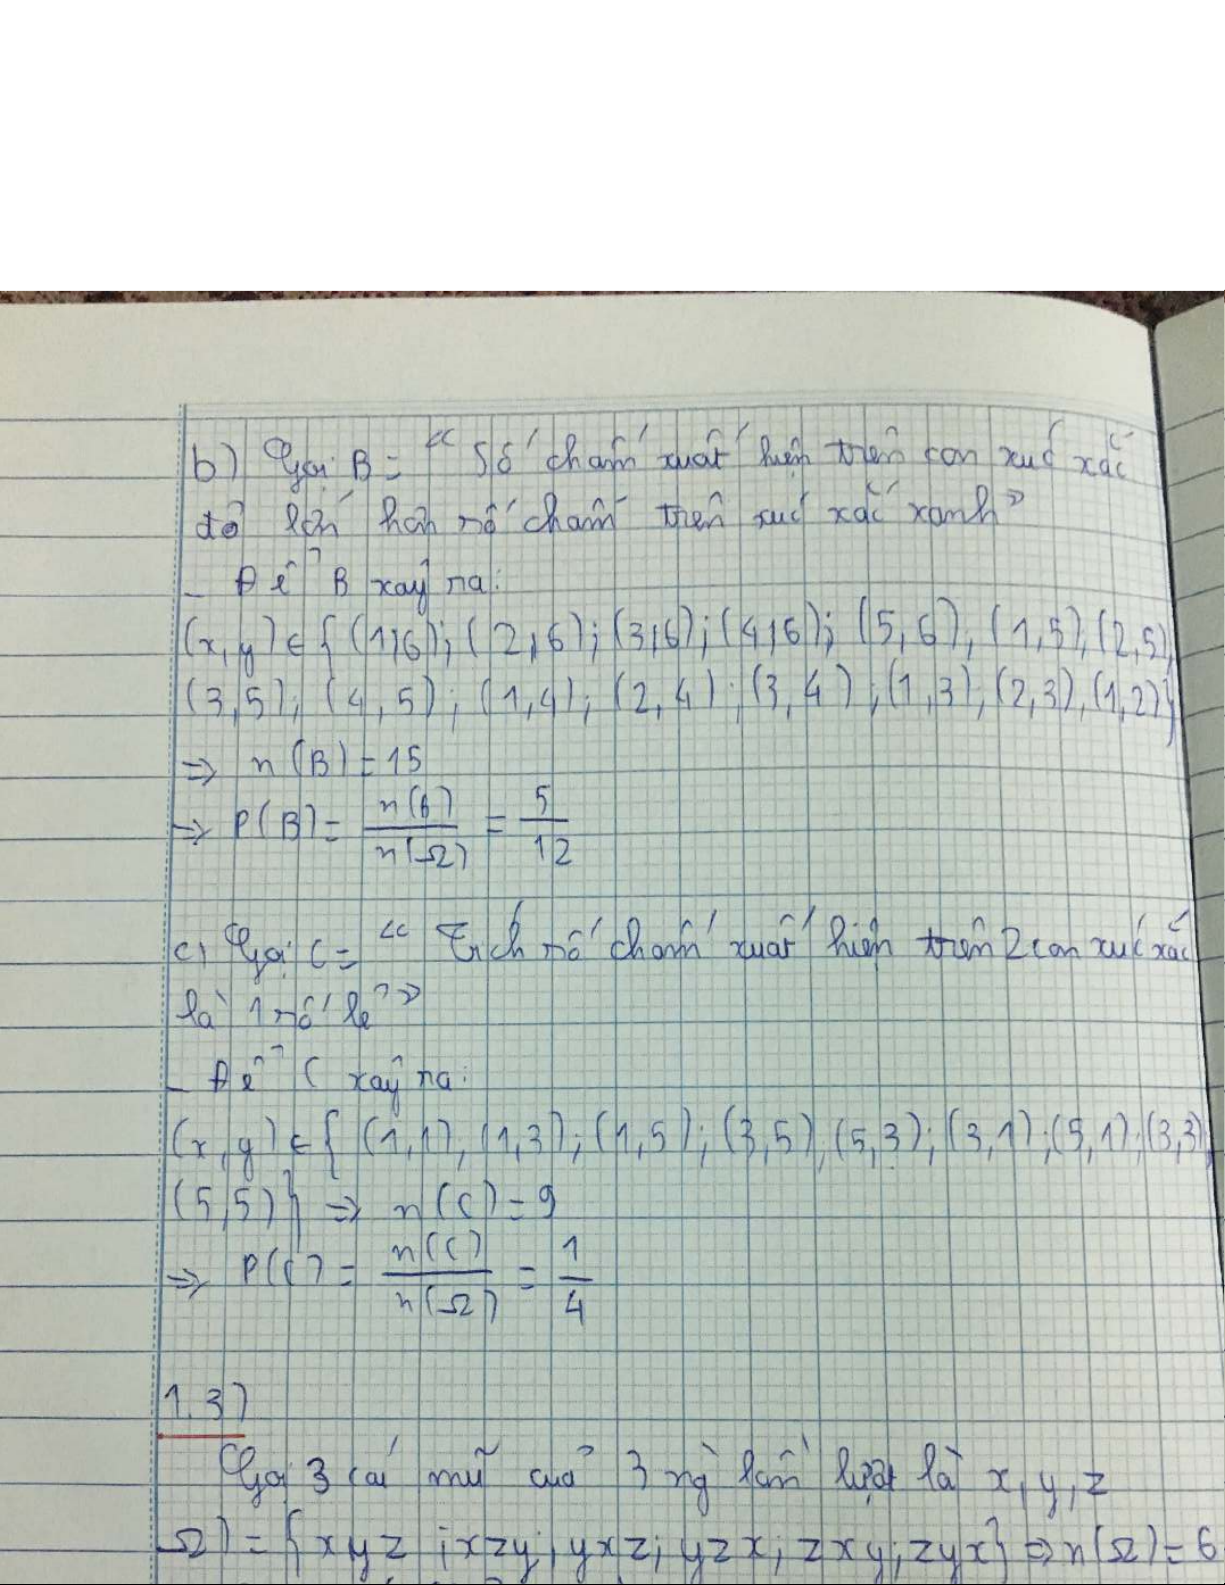 b) Gọi B = " Số chấm xuất hiện trên con xúc xắc
đỏ lớn hơn số chấm trên xúc xắc xanh"
- Để B xảy ra:
(x,y) ∈ { (1,6); (2,6); (3,6); (4,6); (5,6), (1,5), (2,5),
(3,5); (4,5); (1,4); (2,4); (3,4); (1,3); (2,3), (1,2)}
=> n(B) = 15
=> P(B) = n(B)/n(Ω) = 5/12
c) Gọi C = " Tích số chấm xuất hiện trên 2 con xúc xắc
là 1 số lẻ"
- Để C xảy ra:
(x,y) ∈ { (1,1), (1,3); (1,5); (3,5), (5,3); (3,1); (5,1); (3,3),
(5,5)} => n(C) = 9
=> P(C) = n(C)/n(Ω) = 1/4
1.3)
Gọi 3 cái mũ của 3 ng lần lượt là x, y, z
Ω) = {xyz; xzy; yxz; yzx; zxy; zyx} => n(Ω) = 6